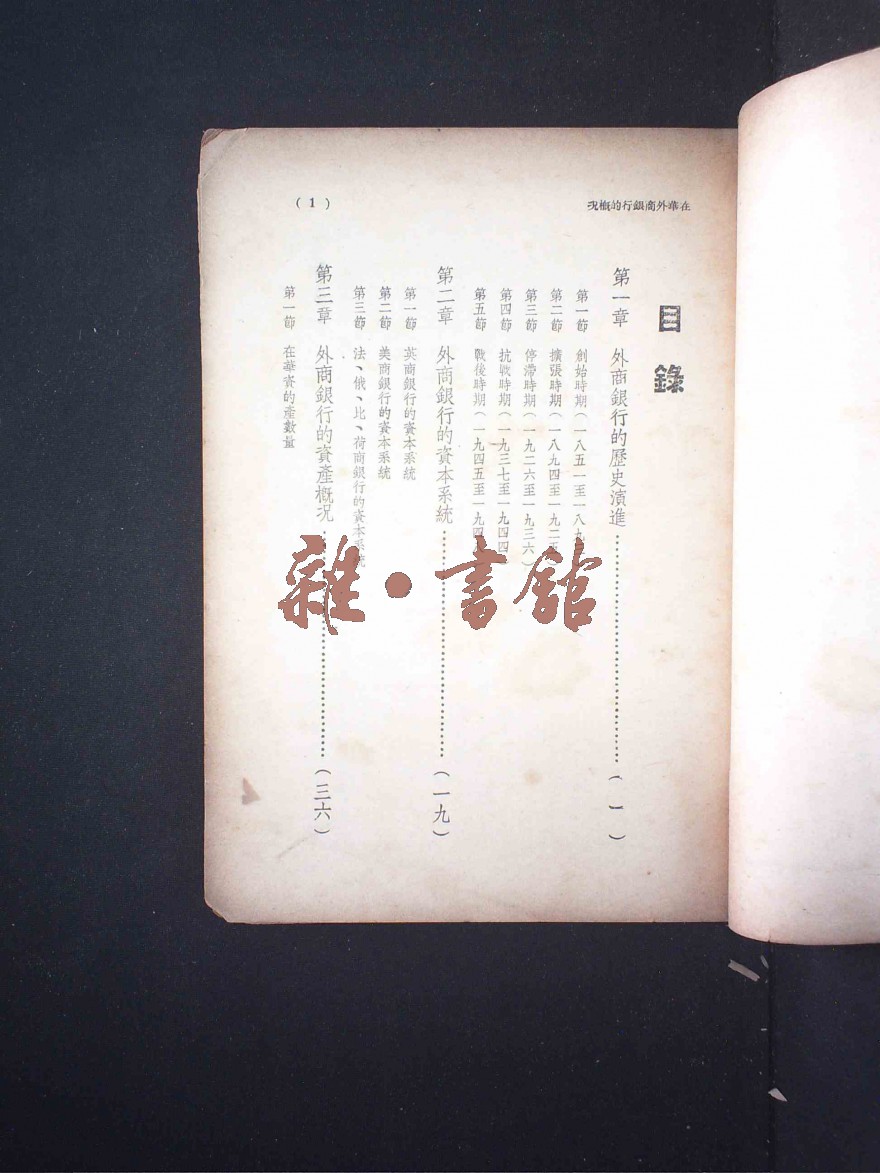 在華外商銀行的槪況
( 1 )
目錄
第一章 外商銀行的歷史演進……………………(一)
第一節 創始時期(一八五一至一八九
第二節 擴張時期(一八九四至一九二五
第三節 停滯時期(一九二六至一九三六)
第四節 抗戰時期(一九三七至一九四四
第五節 戰後時期(一九四五至一九四
第二章 外商銀行的資本系統……………………(一九)
第一節 英商銀行的資本系統
第二節 美商銀行的資本系統
第三節 法、俄、比、荷商銀行的資本系統
第三章 外商銀行的資產槪況……………………(三六)
第一節 在華資的產數量
雜·書館